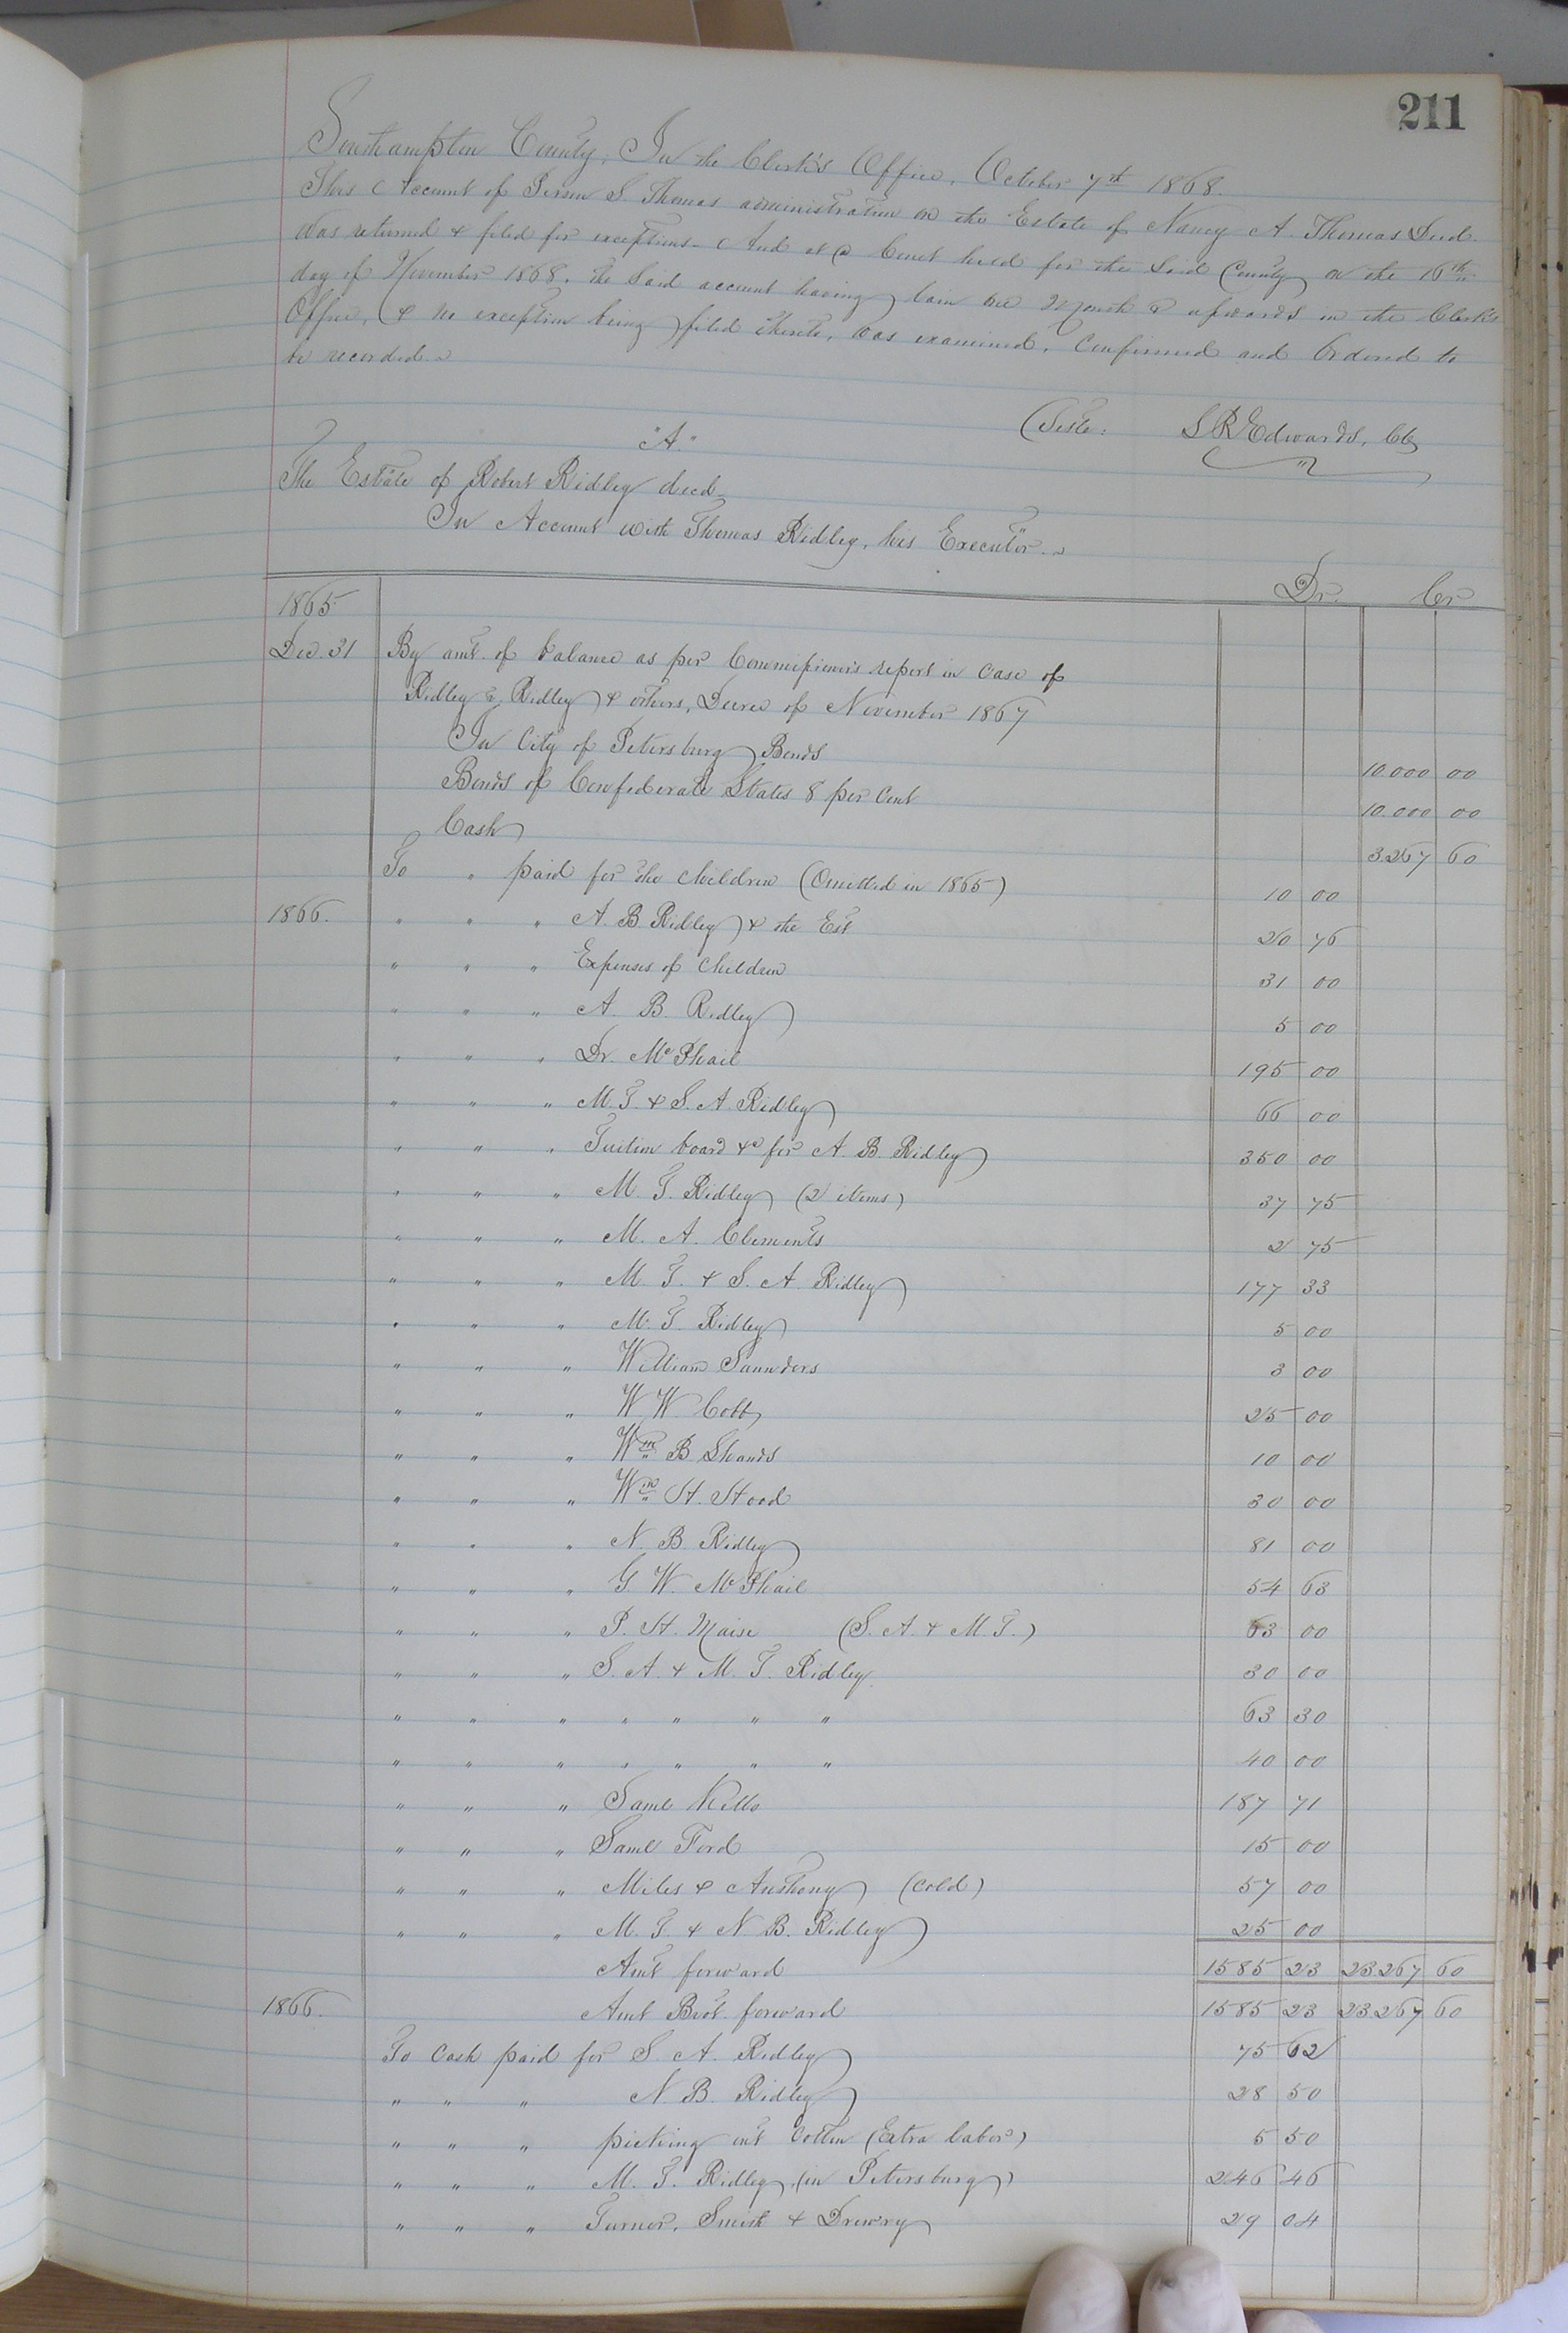 211
Southampton County, In the Clerk's Office, October 7th 1868.
This Account of S. Thomas administration on the Estate of Nancy A. Thomas Decd.
was returned & filed for exceptions. And at a Court held for the said County on the 16th
day of November 1868, the said account having lain one month & upwards in the Clerk's
Office, & no exception being filed thereto, was examined, Confirmed and Ordered to
be recorded.
Teste: S R Edwards, Clk
"A."
The Estate of Robert Ridley decd
In Account with Thomas Ridley, his Executor.
Dr. Cr
1865
Dec. 31 By amt. of balance as per Commissioner's report in case of
Ridley vs Ridley & others, Decree of November 1867
In City of Petersburg Bonds 10.000 00
Bonds of Confederate States 8 per cent 10.000 00
Cash 3.267 60
To " paid for the children (Omitted in 1865) 10 00
1866. " " " A. B. Ridley & the Est 20 76
" " " Expenses of children 31 00
" " " A. B. Ridley 5 00
" " " Dr. McPhail 195 00
" " " M. T. & S. A. Ridley 66 00
" " " Tuition board &c for A. B. Ridley 350 00
" " " M. T. Ridley (2 items) 37 75
" " " M. A. Clements 2 75
" " " M. T. & S. A. Ridley 177 33
" " " M. T. Ridley 5 00
" " " William Saunders 3 00
" " " W W. Cobb 25 00
" " " Wm B Shands 10 00
" " " Wm H. Hood 30 00
" " " N. B. Ridley 81 00
" " " G. W. McPhail 54 63
" " " P. H. (S. A. & M. T.) 63 00
" " " S. A. & M. T. Ridley. 30 00
" " " " " " " 63 30
" " " " " " " 40 00
" " " Saml Kello 187 71
" " " Saml Ford 15 00
" " " Miles & Anthony (cold) 57 00
" " " M. T. & N. B. Ridley 25 00
Amt forward 1585 23 23.267 60
1866. Amt Brot. forward 1585 23 23.267 60
To Cash paid for S. A. Ridley 75 62
" " " N. B. Ridley 28 50
" " " picking out Cotton (Extra labor) 5 50
" " " M. T. Ridley (in Petersburg) 246 46
" " " Turner, Smith & Drewry 29 04